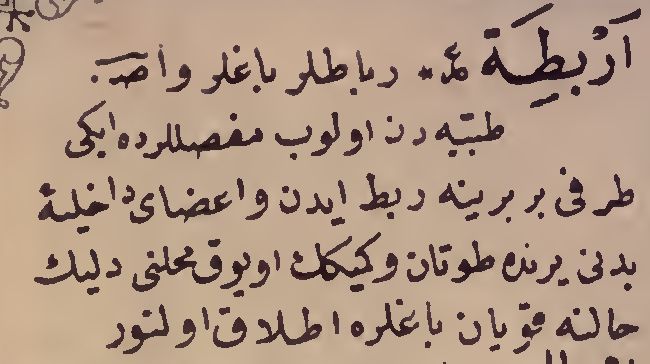 اَرْبِطَة عد رباطلر باغلر واصـ.
طبيه دن اولوب مفصللرده ایکی
طرفی بربرینه ربط ایدن واعضای داخلیهٔ
بدنی یرنده طوتان وکمیکك اویوق محلنی دلیك
حالنه قویان باغلره اطلاق اولنور